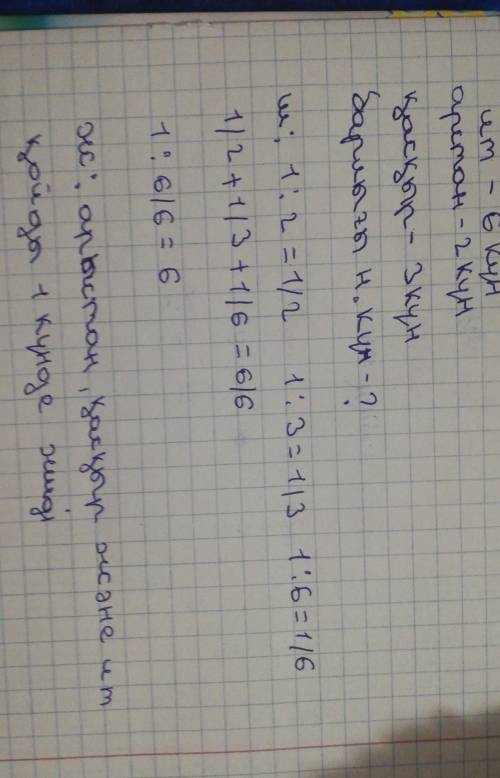 ит - 6 күн
арстан - 2 күн
қасқыр - 3 күн
барлығы н. күн - ?
ш: 1:2=1/2 1:3=1/3 1:6=1/6
1/2+1/3+1/6=6/6
1:6/6=6
ж: арыстан, қасқыр және ит
қойды 1 күнде жейді